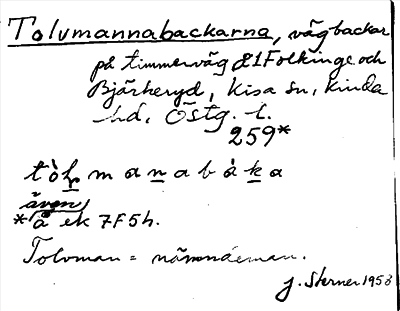 Tolvmannabackarna, vägbackar
på timmerväg Folkinge och
Bjärkeryd, Kisa sn, Kinda
hd, Östg. l.
259*
även
*å ek 7F5h.
Tolvman = nämndeman.
J. Sterner 1953